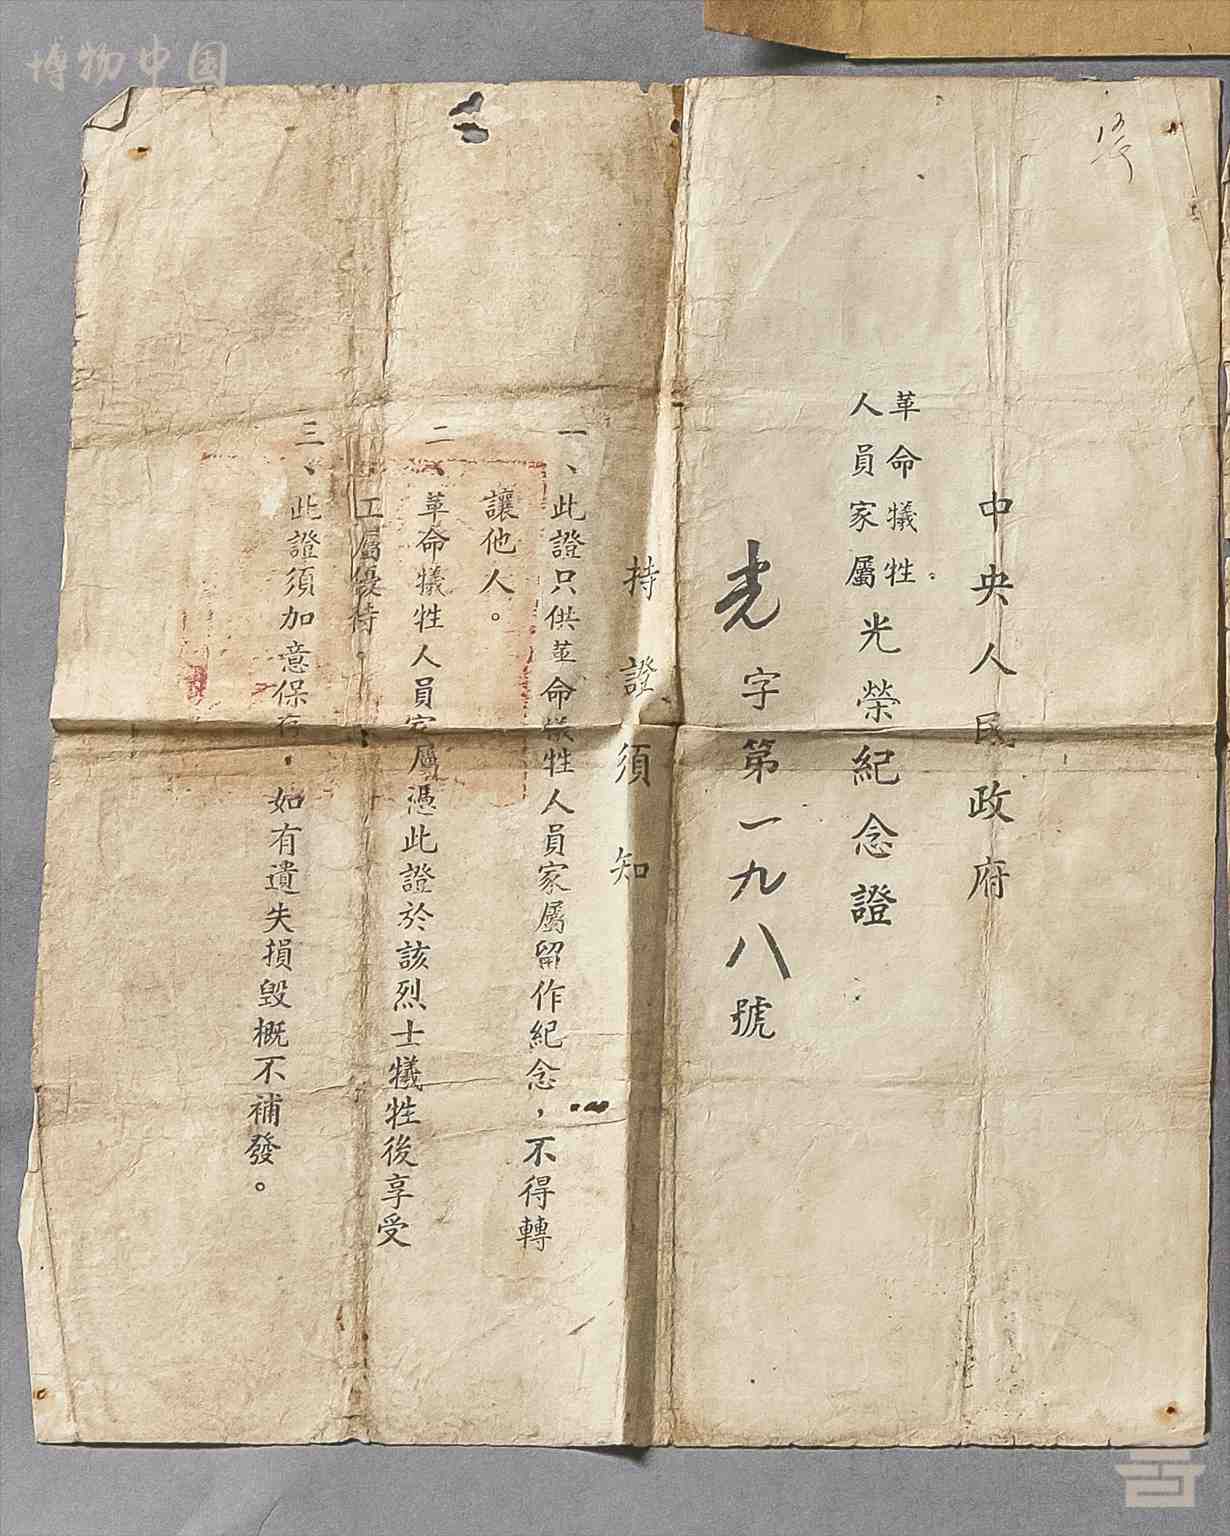 博物中国
中央人民政府
革命犧牲
人員家屬
光榮紀念證
光字第一九八號
持證須知
一、此證只供革命犧牲人員家屬留作紀念，不得轉
讓他人。
二、革命犧牲人員家屬憑此證於該烈士犧牲後享受
工屬優待。
三、此證須加意保存，如有遺失損毀概不補發。